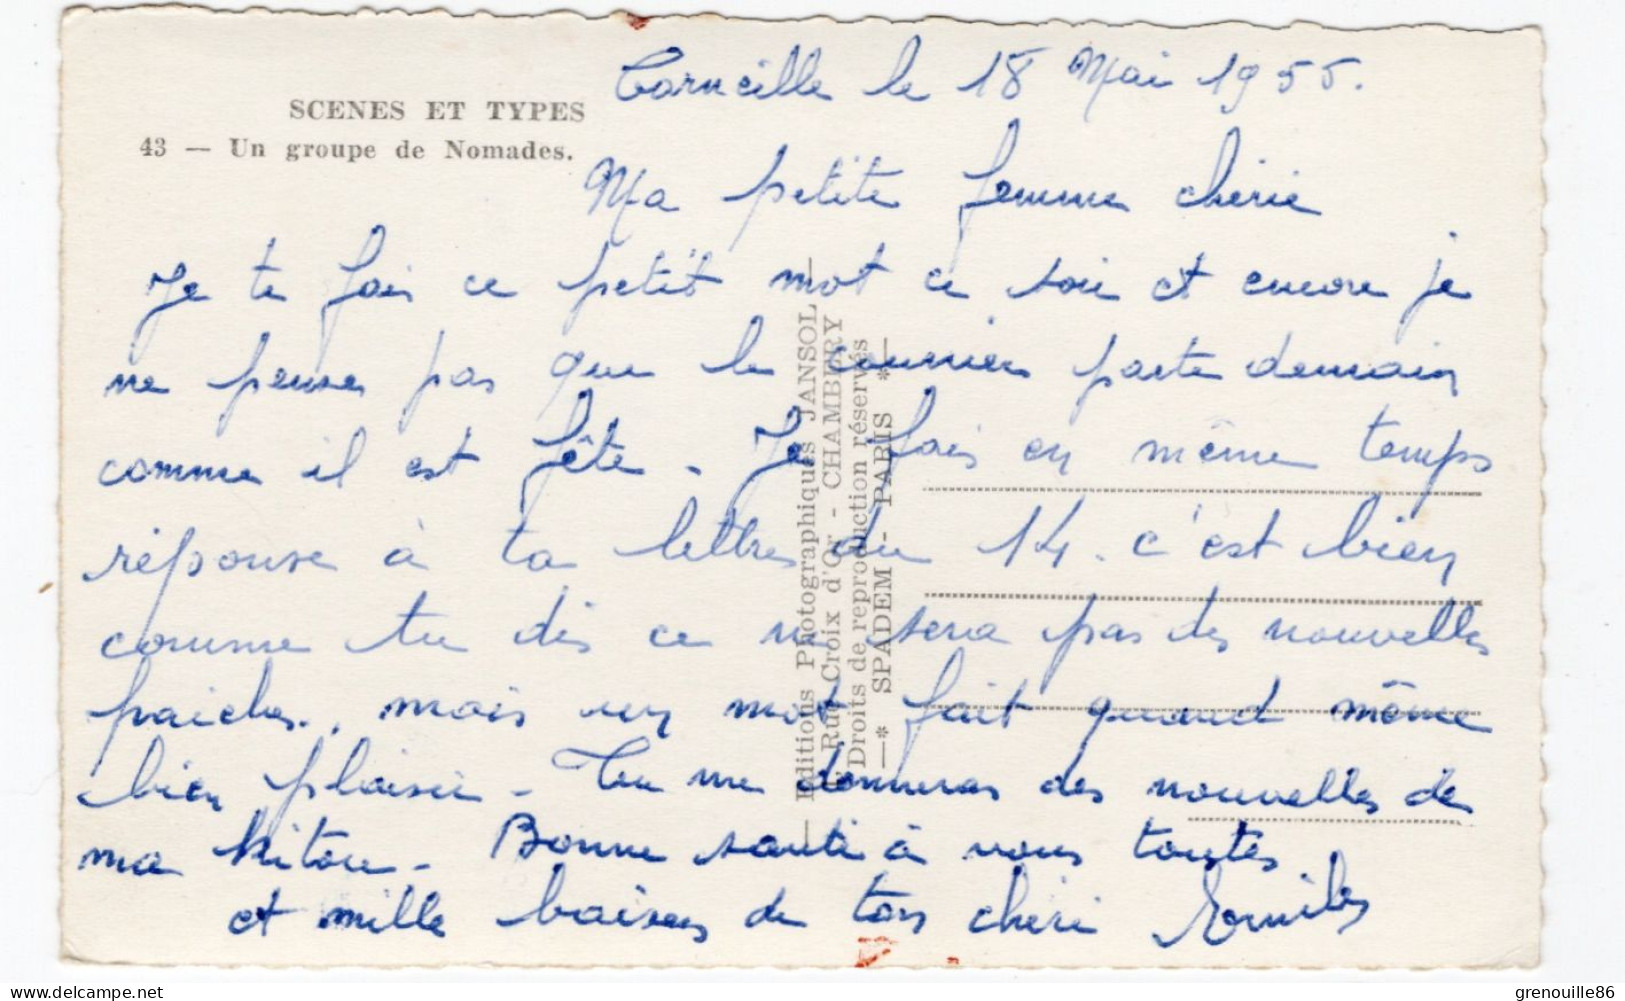 Corneille le 18 Mai 1955.
SCENES ET TYPES
43 — Un groupe de Nomades.
Ma petite femme chérie
Je te fais ce petit mot ce soir et encore je
ne pense pas que le courrier parte demain
comme il est fête. Je fais en même temps
réponse à ta lettre du 14. c'est bien
comme tu dis ce ne sera pas des nouvelles
fraiches, mais un mot fait quand même
bien plaisir - Tu me donneras des nouvelles de
ma Kitou - Bonne santé à vous toutes
et mille baisers de ton cheri
Editions Photographiques JANSOL
Rue Croix d'Or - CHAMBERY
Droits de reproduction réservés
—* SPADEM - PARIS *—
delcampe.net
grenouille86